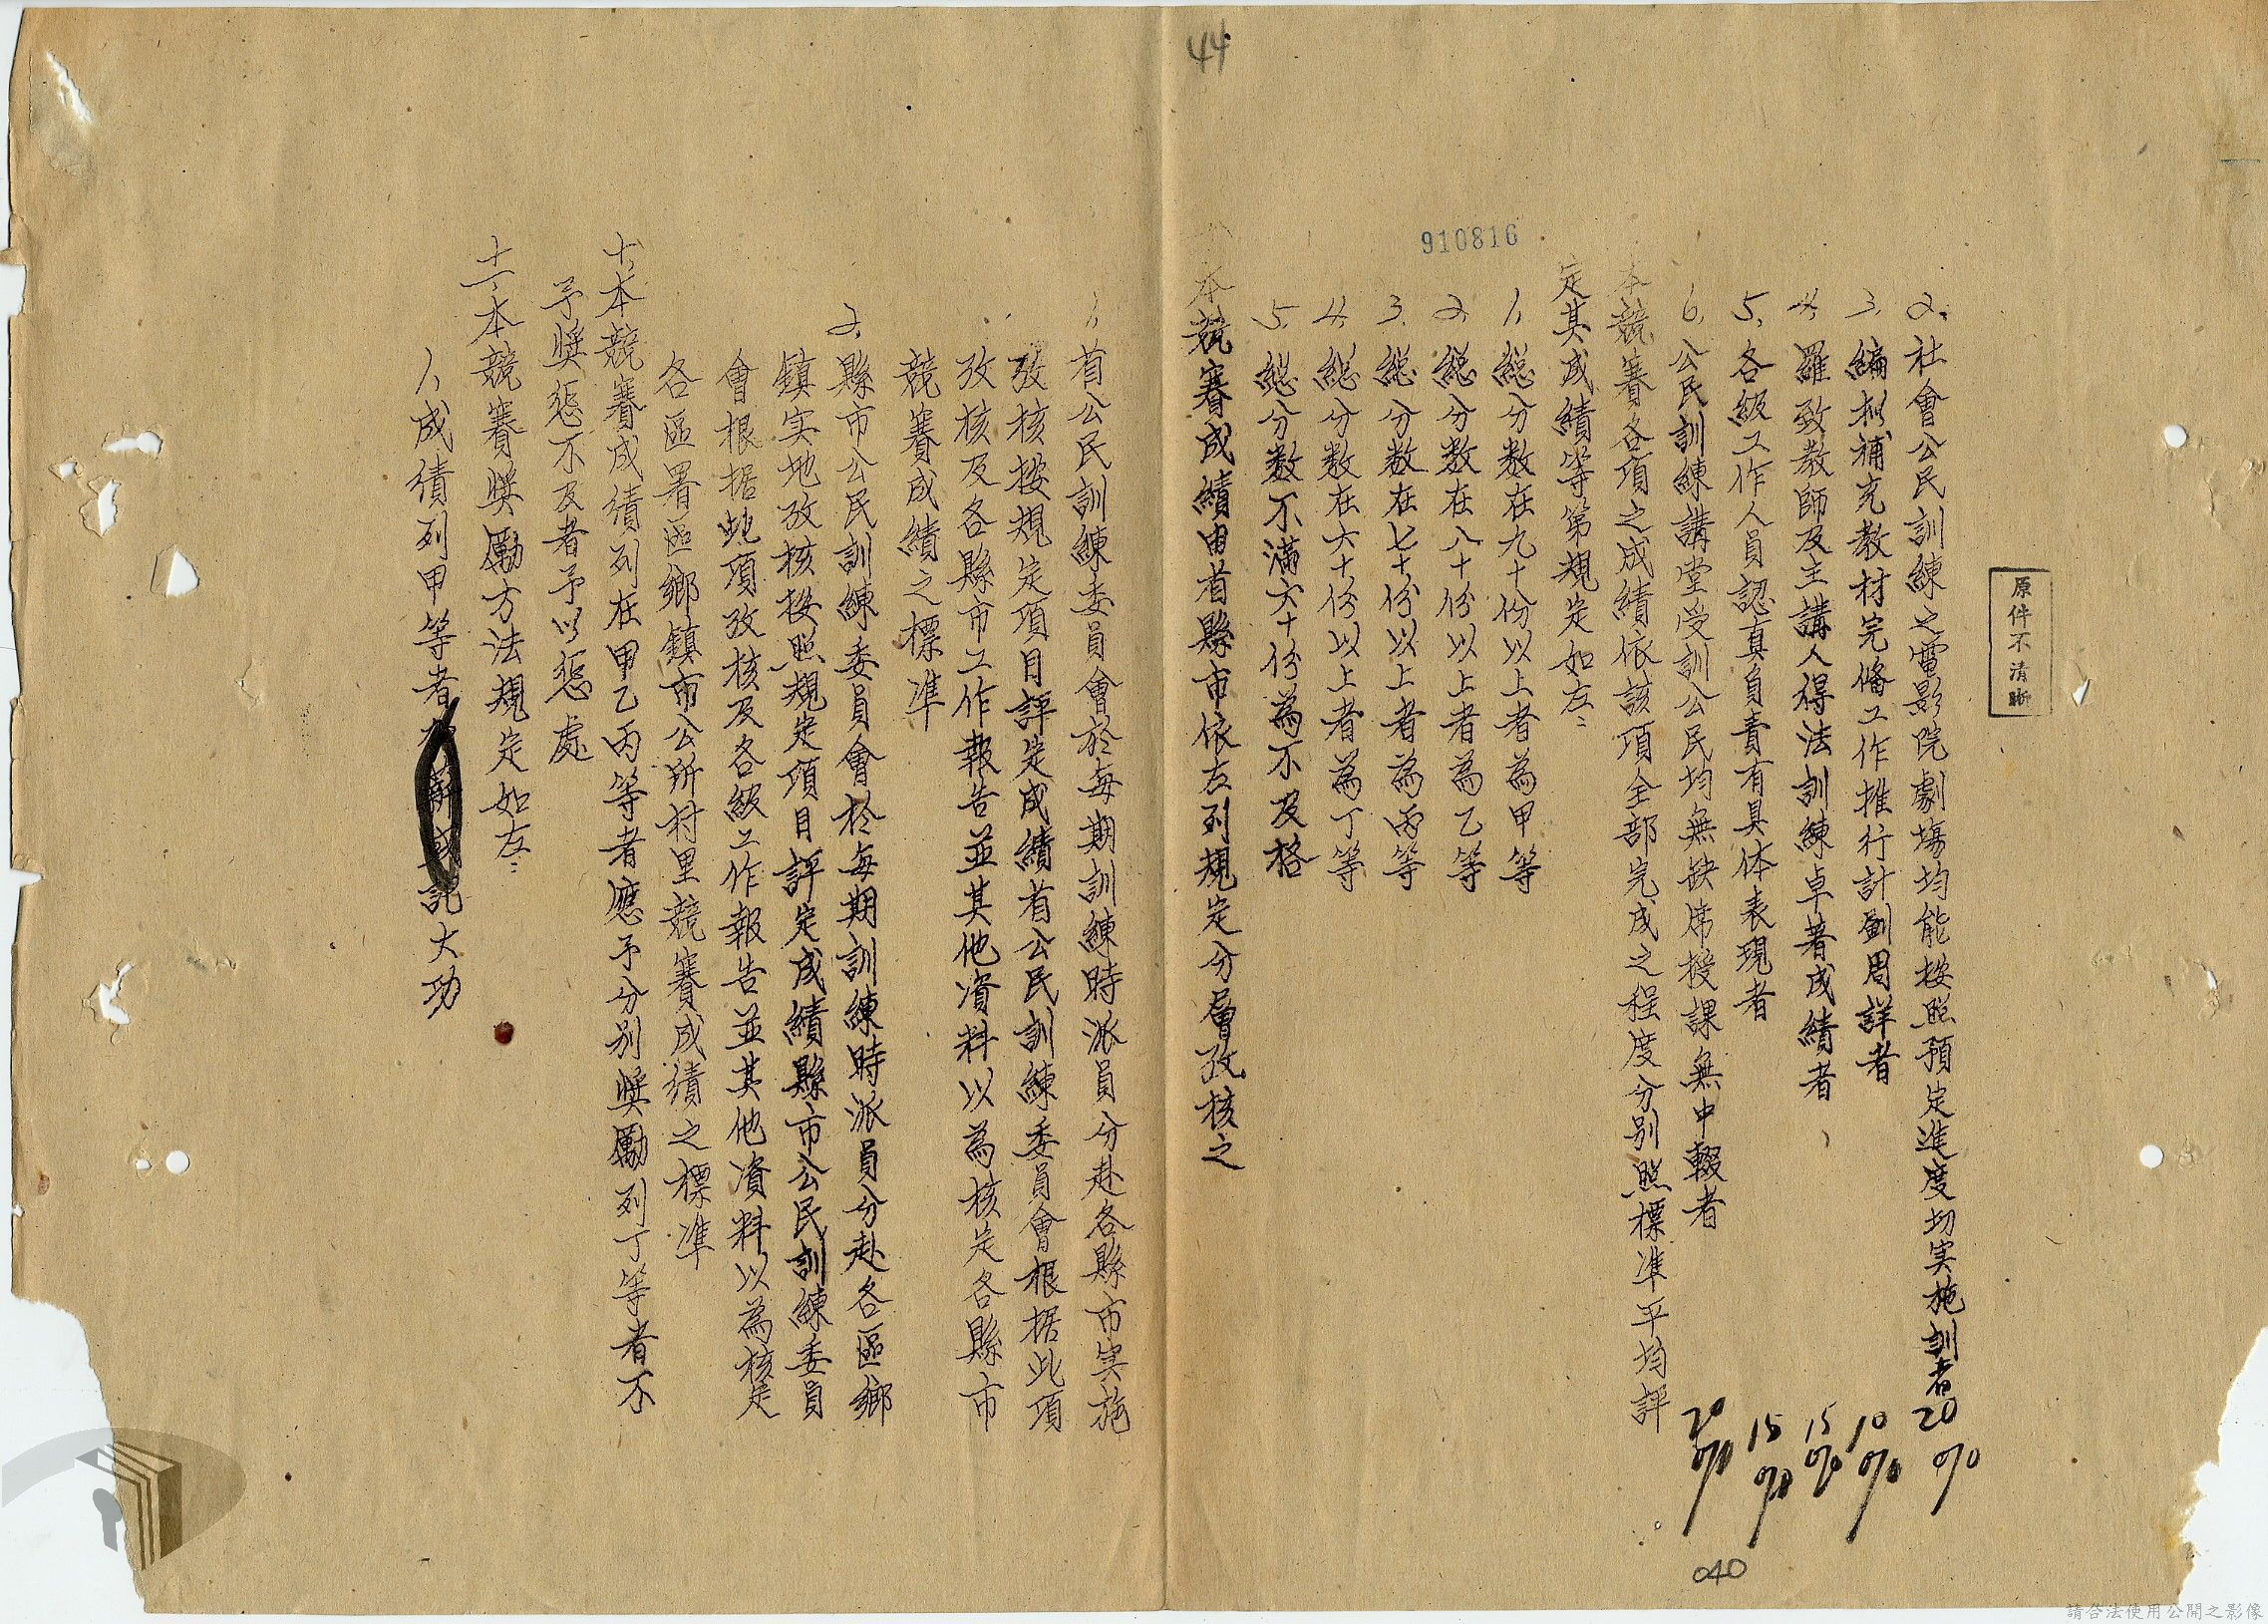 44
910816
原件不清晰
2.社會公民訓練之電影院劇塲均能按照預定進度切実施訓者 20%
3.編拟補充教材完俻工作推行計劃周詳者 10%
4.羅致教師及主講人得法訓練卓著成績者 15%
5.各級工作人員認真負責有具体表現者 15%
6.公民訓練講堂受訓公民均無缺席授課無中輟者 20%
本競賽各項之成績依該項全部完成之程度分别照標準平均評
定其成績等第規定如左：
1.縂分数在九十份以上者為甲等
2.縂分数在八十份以上者為乙等
3.縂分数在七十份以上者為丙等
4.縂分数在六十份以上者為丁等
5.縂分数不滿六十份為不及格
本競賽成績由省縣市依左列規定分層攷核之
1.省公民訓練委員會於每期訓練時派員分赴各縣市実施
攷核按規定項目評定成績省公民訓練委員會根据此項
攷核及各縣市工作報告並其他資料以為核定各縣市
競賽成績之標準
2.縣市公民訓練委員會於每期訓練時派員分赴各區鄉
鎮実地攷核按照規定項目評定成績縣市公民訓練委員
會根据此項攷核及各級工作報告並其他資料以為核定
各區署區鄉鎮市公所村里競賽成績之標準
十、本競賽成績列在甲乙丙等者應予分别獎勵列丁等者不
予獎懲不及者予以懲處
十一、本競賽獎勵方法規定如左：
1.成績列甲等者記大功
040
請合法使用公開之影像